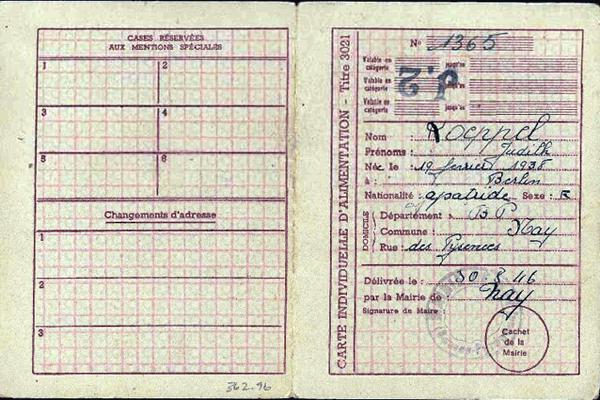 CASES RÉSERVÉES
AUX MENTIONS SPÉCIALES
1
2
3
4
5
6
Changements d'adresse
1
2
3
362.96
CARTE INDIVIDUELLE D'ALIMENTATION - Titre 3021
No 1365
Valable en catégorie jusqu'au
Valable en catégorie jusqu'au
Valable en catégorie jusqu'au
J.2
Nom : Koeppel
Prénoms : Judith
Née le : 19 fevrier 1938
à : Berlin
Nationalité : apatride Sexe : F
DOMICILE
Département : B P
Commune : Nay
Rue : des Pyrenees
Délivrée le : 30 8 46
par la Mairie de : Nay
Signature du Maire :
Cachet
de la
Mairie